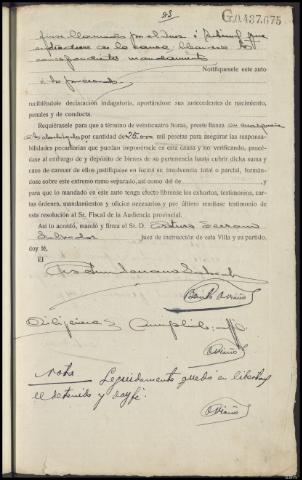 G.0.437.675
fuese llamado por el Juez o Tribunal que
entendiese de la causa, líbrense los
correspondientes mandamientos
Notifíquesele este auto
al procesado
recibiéndosele declaración indagatoria, aportándose sus antecedentes de nacimiento,
penales y de conducta.
Requiérasele para que a término de veinticuatro horas, preste fianza en
por cantidad de 25.000 mil pesetas para asegurar las responsabi-
lidades pecuniarias que puedan imponérsele en esta causa y no verificando, procé-
dase al embargo y depósito de bienes de su pertenencia hasta cubrir dicha suma y
caso de carecer de ellos justifíquese en forma su insolvencia total o parcial, formán-
dose sobre este extremo ramo separado, así como del de y
para que lo mandado en este auto tenga efecto líbrense los exhortos, testimonios, car-
tas órdenes, mandamientos y oficios necesarios y por último remítase testimonio
de esta resolución al Sr. Fiscal de la Audiencia provincial.
Así lo acordó, mandó y firma el Sr. D. Arturo Serrano
juez de instrucción de esta Villa y su partido,
doy fe.
El
Diligencia Cumplido
nota Seguidamente queda en libertad
el detenido y doy fe.